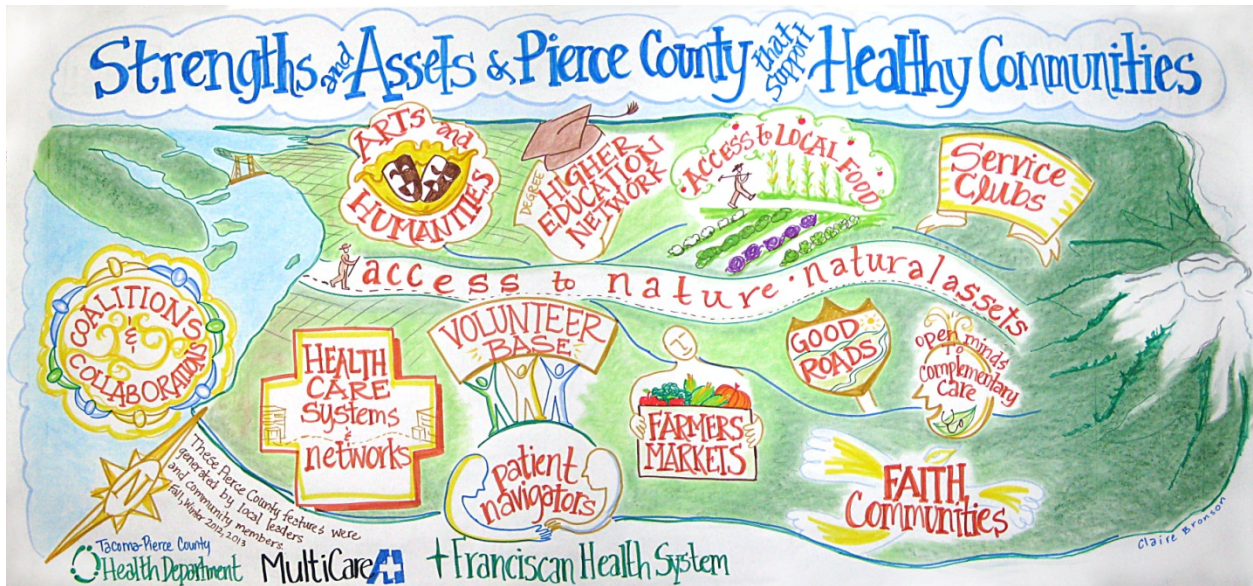 Strengths and Assets of Pierce County that support Healthy Communities
ARTS and
HUMANITIES
DEGREE
HIGHER
EDUCATION
NETWORK
ACCESS to LOCAL FOOD
Service
Clubs
access to nature · natural assets
COALITIONS
&
COLLABORATIONS
HEALTH
CARE
Systems
&
networks
VOLUNTEER
BASE
patient
navigators
FARMERS
MARKETS
GOOD
ROADS
open minds
To
complementary
care
FAITH
Communities
N
These Pierce County features were
generated by local leaders
and community members
Fall, Winter 2012, 2013
Tacoma-Pierce County
Health Department
MultiCare
Franciscan Health System
Claire Bronson